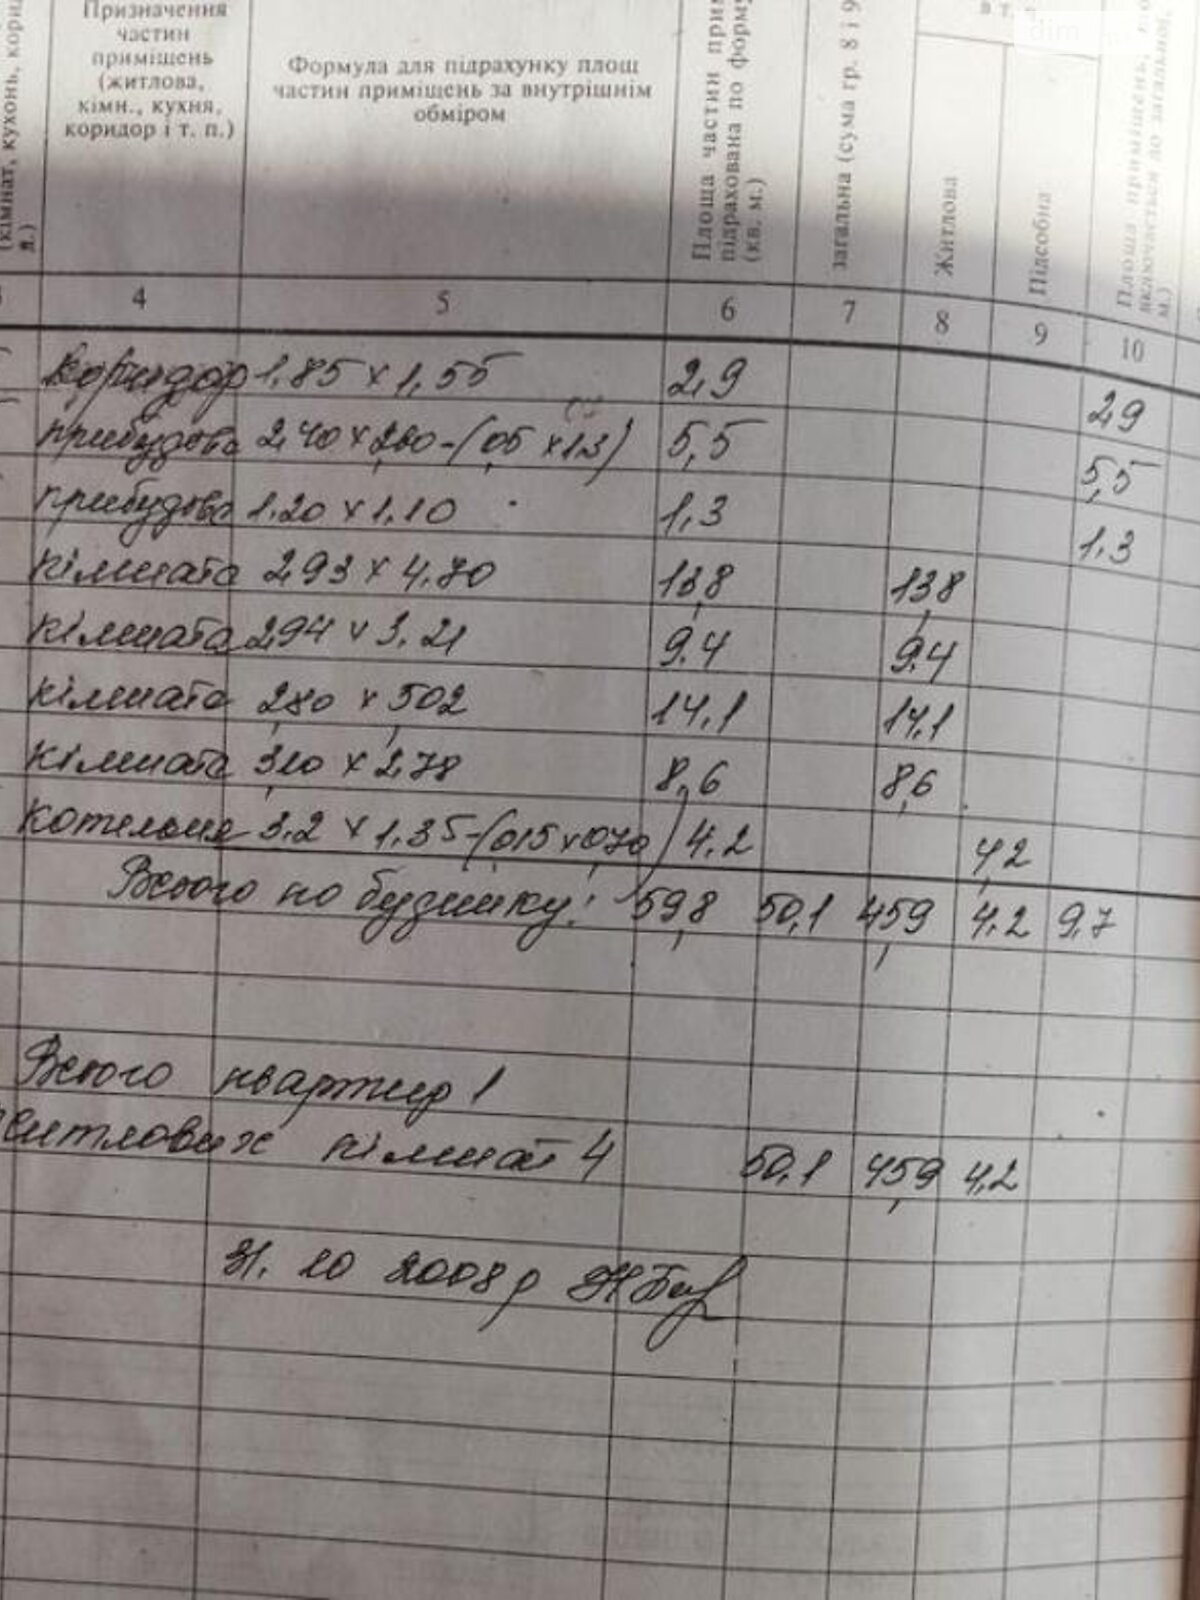 (кімнат, кухонь, кори
л.)
Призначення
частин
приміщень
(житлова,
кімн., кухня,
коридор і т. п.)
Формула для підрахунку площ
частин приміщень за внутрішнім
обміром
Площа частин прим
підрахована по форму
(кв. м.)
загальна (сума гр. 8 і 9
в т.
Житлова
Підсобна
Площа приміщення,
включається до загальної,
м.)
dim
4 5 6 7 8 9 10
коридор 1,85 х 1,55 2,9 2,9
прибудова 2,40 х 2,60 - (0,5 х 1,3) 5,5 5,5
прибудова 1.20 х 1.10 1,3 1,3
кімната 2,93 х 4,70 13,8 13,8
кімната 2,94 х 3,21 9.4 9.4
кімната 2,80 х 5,02 14,1 14,1
кімната 3,10 х 2,78 8,6 8,6
котельня 3.2 х 1.35 - (0,15 х 0,70) 4.2 4,2
Всього по будинку: 59,8 50,1 45,9 4.2 9,7
Всього квартир 1
житлових кімнат 4 50,1 45,9 4,2
31. 10 2008р